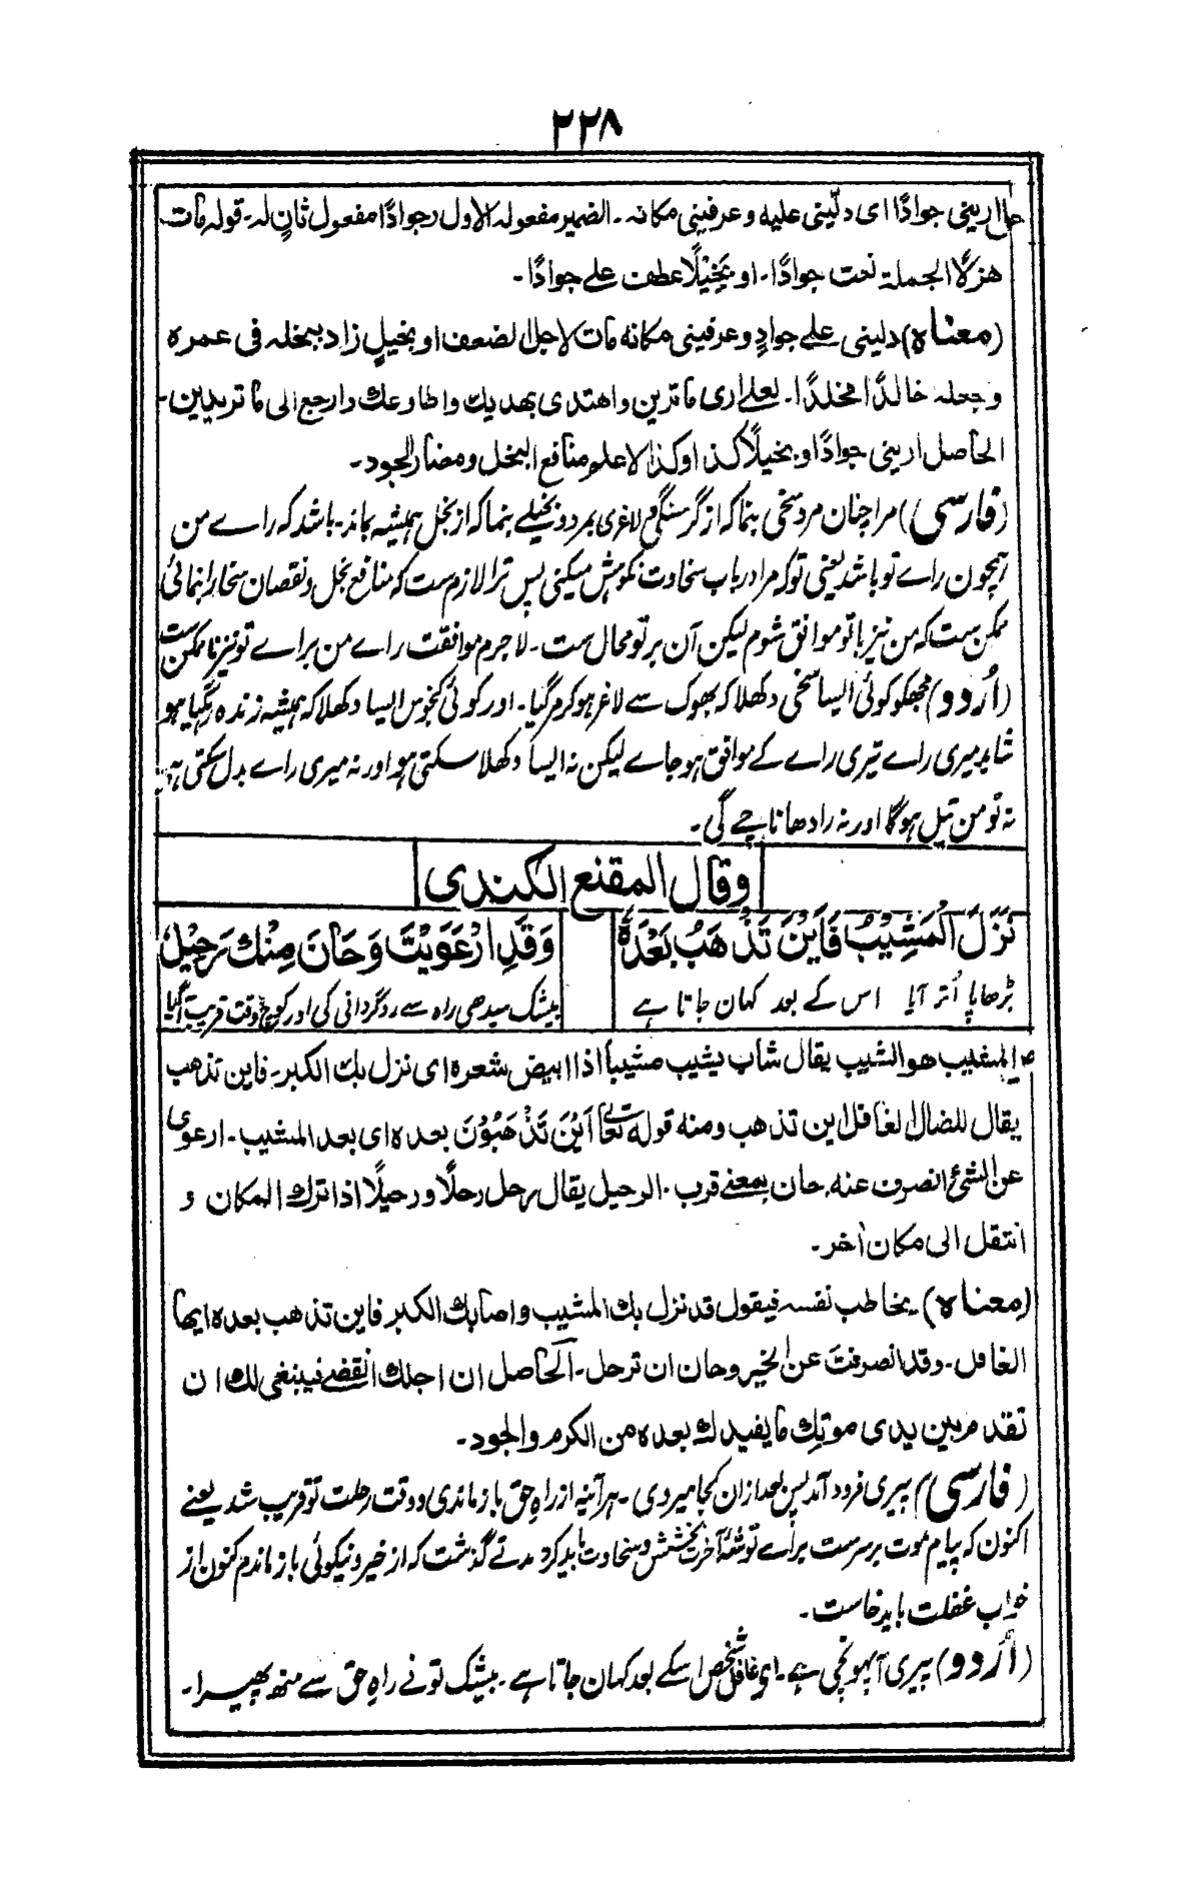 ۲۲۸
حل اريني جوادًا اى دلّيني عليه وعرفيني مكانه ۔ الضمير مفعوله الاول وجوادًا مفعول ثانٍ له ۔ قوله مات
هزلًا الجملة نعت جوادًا ۔ او بَخِيْلًا عطف علے جوادًا ۔
(معناه) دليني علے جوادٍ وعرفيني مكانه مات لاجل الضعف او بخيلٍ زاد ببخله فى عمره
وجعله خالدًا مخلدًا ۔ لعلے ارى ما ترين واهتدى بهديك واطاوعك وارجع الى ما تريدين ۔
الحاصل اريني جوادًا او بخيلًا كذا وكذا لاعلم منافع البخل ومضار الجود ۔
(فارسی) مرا چنان مرد سخی بنما که از گرسنگی و لاغری بمرد و بخیلے بنما که از بخل همیشه بماند ۔ باشد که راے من
همچون راے تو باشد یعنی تو که مرا در باب سخاوت نکوهش میکنی پس ترا لازم ست که منافع بخل و نقصان سخا را نمائی
ممکن ست که من نیز با تو موافق شوم لیکن آن بر تو محال ست ۔ لا جرم موافقت راے من براے تو نیز نا ممکن ست
(اُردو) مجھکو کوئی ایسا سخی دکھلا کہ بھوک سے لاغر ہو کر مر گیا ۔ اور کوئی کنجوس ایسا دکھلا کہ ہمیشہ زندہ رہگیا ہو
شاید میری راے تیری راے کے موافق ہو جاے لیکن نہ ایسا دکھلا سکتی ہو اور نہ میری راے بدل سکتی ہے
نہ نو من تیل ہوگا اور نہ رادھا ناچے گی ۔
وقال المقنع الكندى
نَزَلَ الْمَشِيْبُ فَاَيْنَ تَذْهَبُ بَعْدَهٗ وَقَدِ ارْعَوَيْتَ وَحَانَ مِنْكَ رَحِيْلُ
بڑھاپا اُتر آیا اس کے بعد کہان جاتا ہے بیشک سیدھی راہ سے روگردانی کی اور کوچ کا وقت قریب آگیا
المشيب هو الشيب يقال شاب يشيب مشيبًا اذا ابيض شعره اى نزل بك الكبر ۔ فاين تذهب
يقال للضال الغافل اين تذهب ومنه قوله تعالٰى اَيْنَ تَذْهَبُوْنَ بعده اى بعد المشيب ۔ ارعوى
عن الشئ انصرف عنه ۔ حان بمعنے قرب ۔ الرحيل يقال رحل رحلًا ورحيلًا اذا ترك المكان و
انتقل الى مكان آخر ۔
(معناه) يخاطب نفسه فيقول قد نزل بك المشيب واصابك الكبر فاين تذهب بعده ايها
الغافل ۔ وقد انصرفت عن الخير وحان ان ترحل ۔ الحاصل ان اجلك انقضے فينبغى لك ان
تقدم بين يدى موتك ما يفيد لك بعده من الكرم والجود ۔
(فارسی) پیری فرود آمد پس بعد ازان کجا میروی ۔ هر آئینه از راهِ حق باز ماندی و وقت رحلت تو قریب شد یعنے
اکنون که پیام موت بر سرست براے توشۂ آخرت بخشش و سخاوت باید کرد مدتے گذشت که از خیر و نیکوئی باز ماندم کنون از
خواب غفلت باید خاست ۔
(اُردو) پیری آ پہونچی ہے ۔ اى غافل شخص اسکے بعد کہان جاتا ہے ۔ بیشک تو نے راہِ حق سے منھ پھیرا ۔